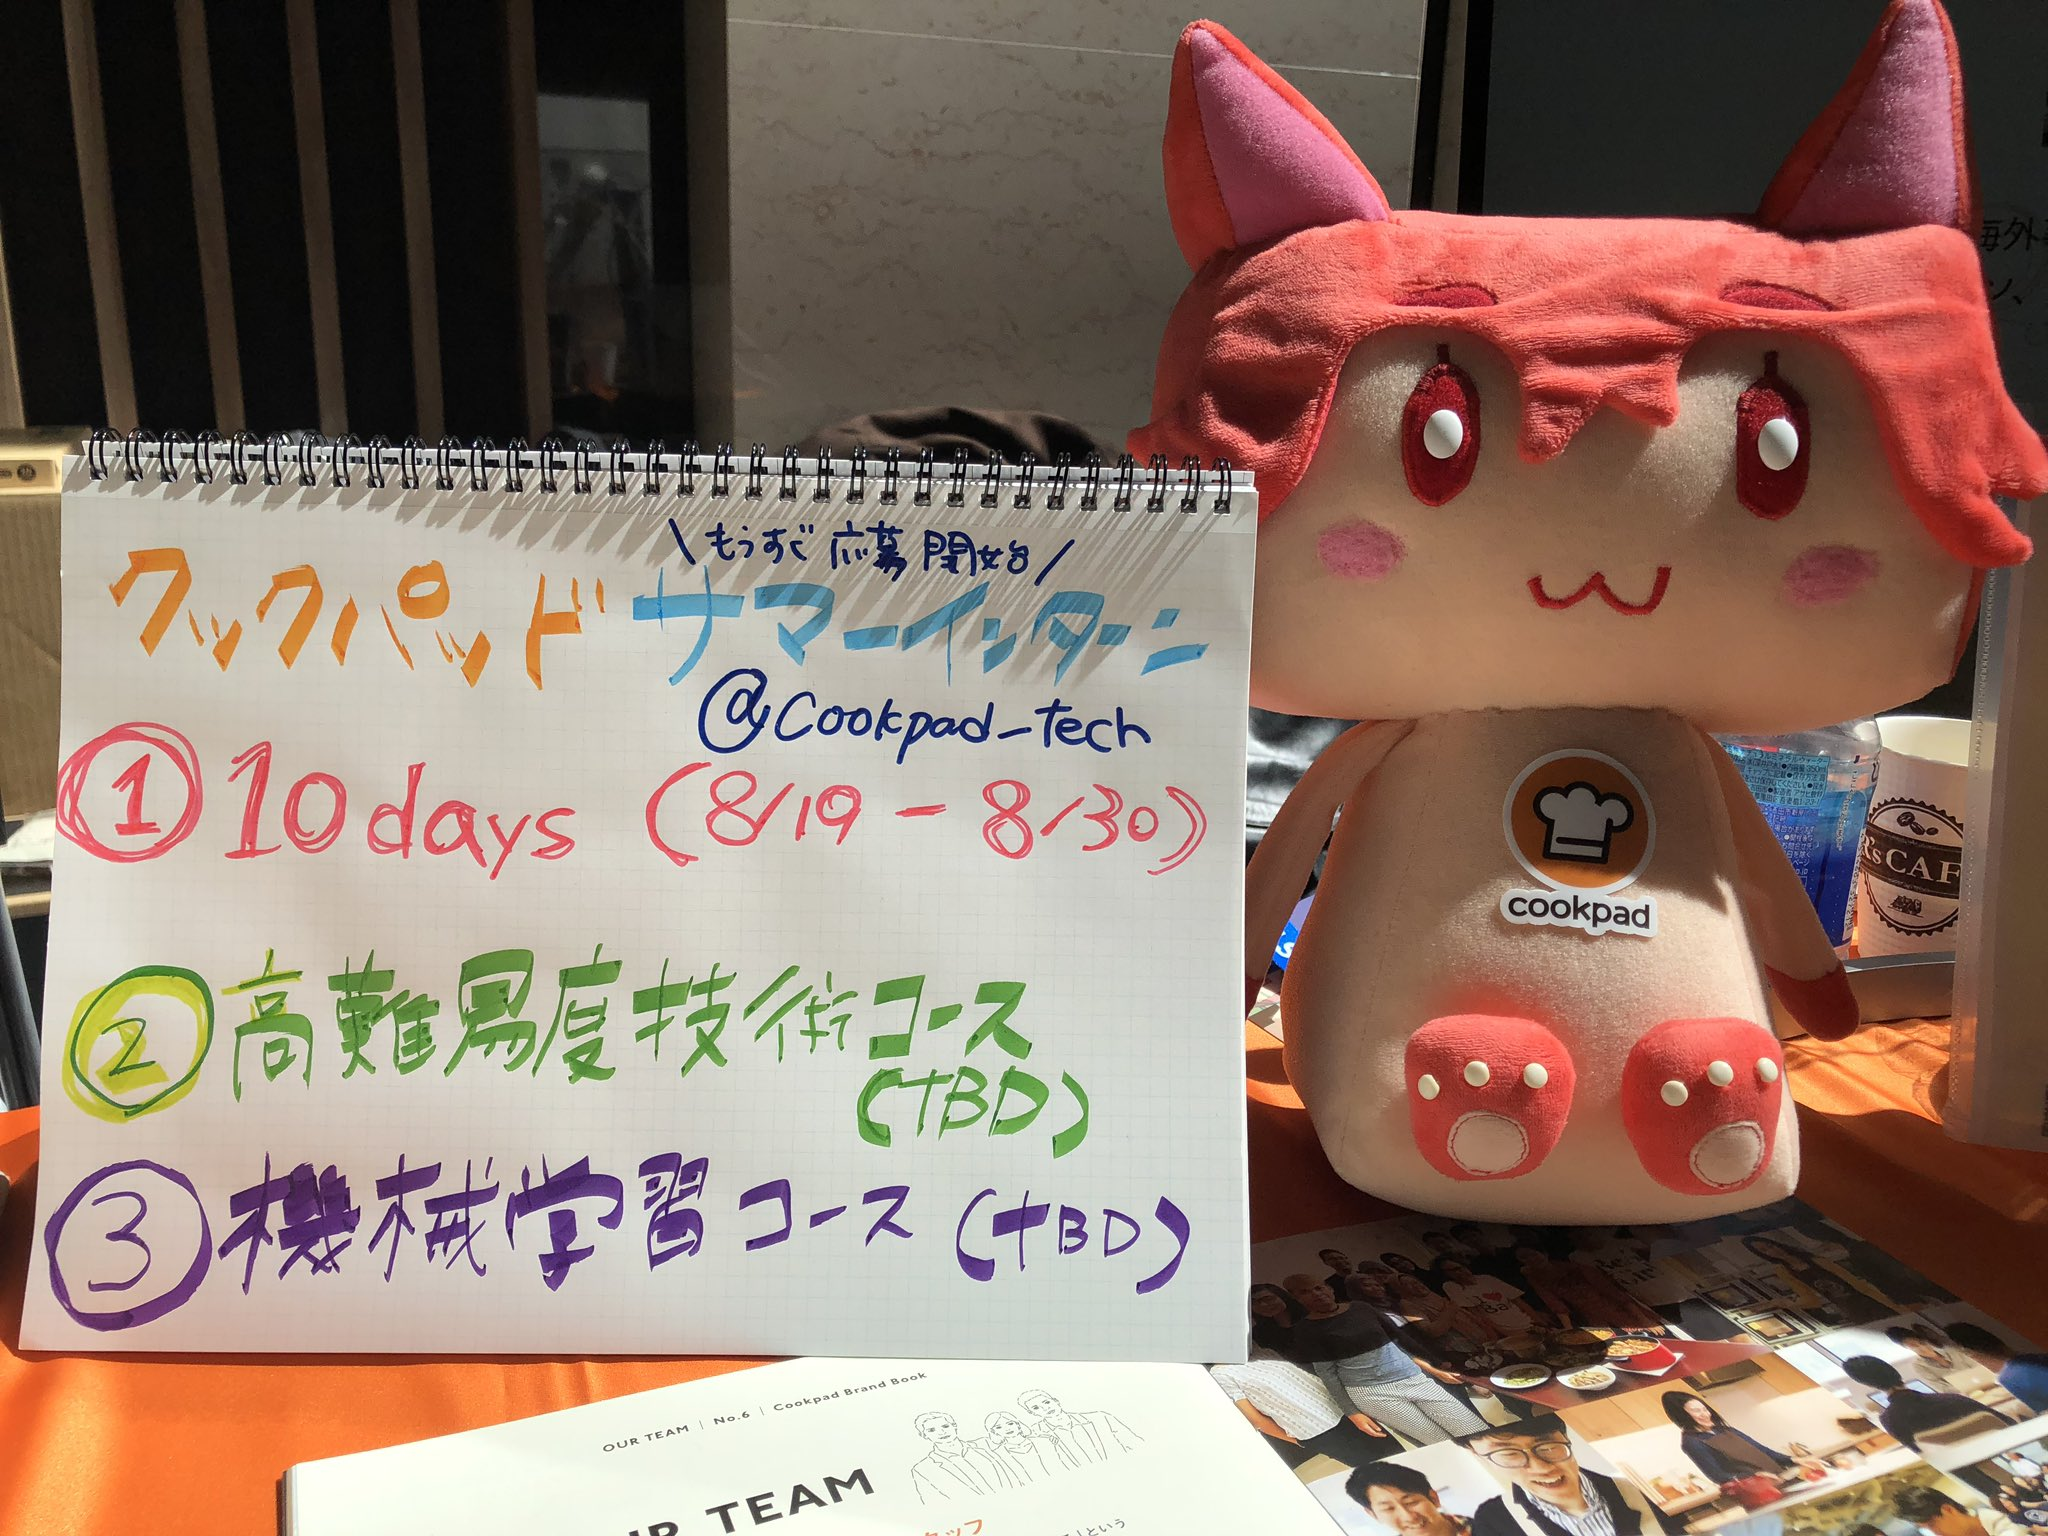 \もうすぐ応募開始/
クックパッド サマーインターン
@Cookpad_tech
① 10days (8/19 - 8/30)
② 高難易度技術コース
(TBD)
③ 機械学習コース (TBD)
cookpad
海外
R's CAF
OUR TEAM | No.6 | Cookpad Brand Book
OUR TEAM
タッフ
という